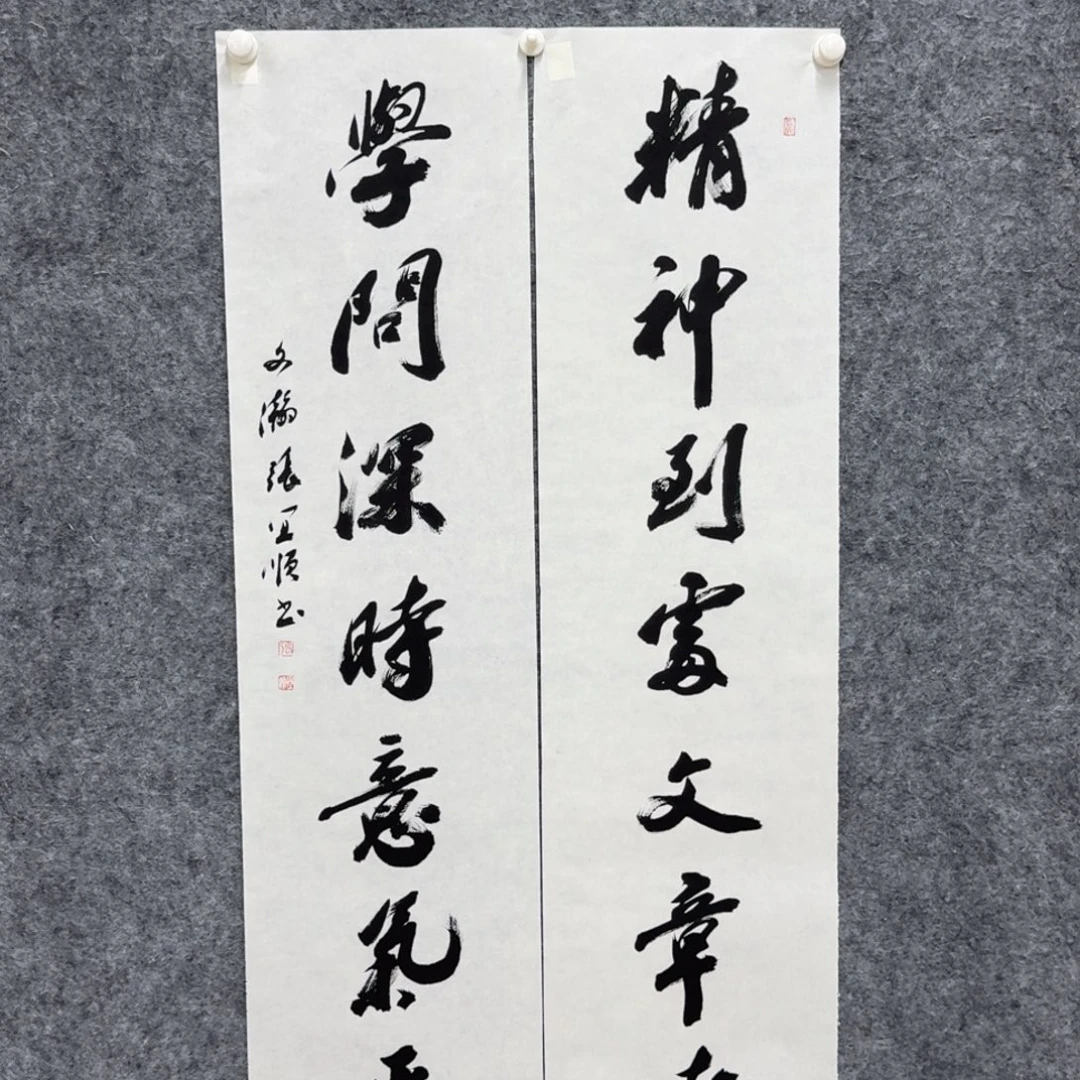 精神到處文章
學問深時意氣
文瀚張宜順书